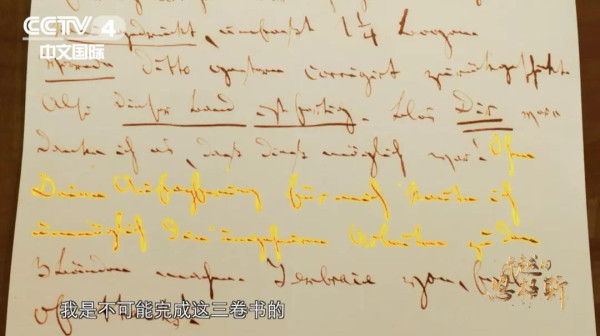 CCTV 4
中文国际
gedruckt, umfasst 1 1/4 Bogen.
Vorrede ditto gestern corrigirt zurückgeschickt.
Also dieser Band ist fertig. Blos Dir ver
danke ich es, daß dieß möglich war! Ohne
Deine Aufopferung für mich konnte ich
unmöglich die ungeheuren Arbeiten zu den
3 Bänden machen. I embrace you, full
of thanks!
恩格斯
我是不可能完成这三卷书的